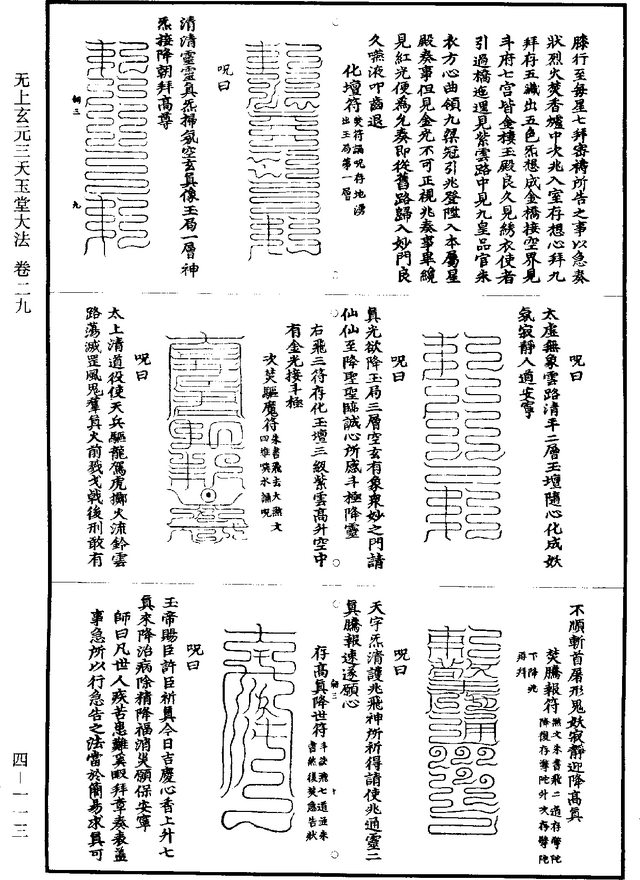 膝行至每星七拜密禱所告之事以急奏
狀烈火焚香爐中次兆入室存想心拜九
拜存五臟出五色炁想成金橋接空界見
斗府七宮皆金樓玉殿良久見綉衣使者
引過橋迤邐見紫雲路中見九皇品官朱
衣方心曲領九梁冠引兆登陞入本屬星
殿奏事但見金光不可正視兆奏事畢纔
見紅光便為允奏即從舊路歸入妙門良
久嚥液叩齒退
化壇符
焚符誦呪存地湧
出玉局第一層
呪曰
清清靈靈真炁掃氛空玄真像玉局一層神
炁接降朝拜高尊
呪曰
太虛無象雲路清平二層玉壇隨心化成妖
氛寂靜人道安寧
呪曰
真光欲降玉局三層空玄有象東妙之門請
仙仙至降聖聖臨誠心所感斗極降靈
右飛三符存化玉壇三級紫雲高升空中
有金光接斗極
次焚驅魔符
朱書飛去火燕文
四維噀水誦呪
呪曰
太上清道役使天兵驅龍駕虎擲火流鈴雲
路蕩滅罡風鬼羣真火前戮戈戟後刑敢有
不順斬首屠形鬼妖寂靜迎降高真
焚騰報符
呪曰
天字炁清護兆飛神所祈得請使兆通靈二
真騰報速遂願心
存高真降世符
呪曰
玉帝賜臣許臣祈真今日吉慶心香上升七
真來降治病除精降福消災願保安寧
師曰凡世人疾苦患難奚暇拜章奏表蓋
事急所以行急告之法當於簡易求真可
无上玄元三天玉堂大法 卷二九
四—一一三